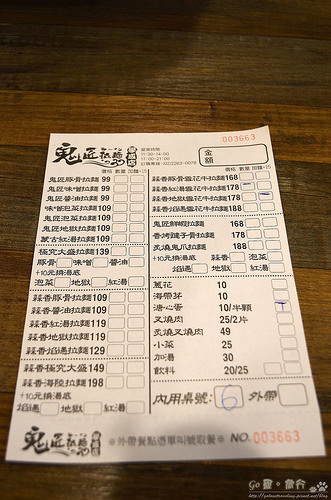 003663
鬼匠拉麵
營業時間
11:30-14:00
17:00-21:00
金額
價格 數量 加麵+15
價格 數量 加麵+15
鬼匠豚骨拉麵 99
鬼匠味噌拉麵 99
鬼匠醬油拉麵 99
味噌泡菜拉麵 109
鬼匠泡菜拉麵 109
鬼匠地獄拉麵 109
蒙古紅湯拉麵 109
極究大盛拉麵 139
豚骨 味噌 醬油
+10元換湯底
泡菜 地獄 紅湯
蒜香豚骨拉麵 109
蒜香醬油拉麵 109
蒜香紅湯拉麵 119
蒜香地獄拉麵 119
蒜香焰遇拉麵 129
蒜香極究大盛 149
蒜香海陸拉麵 198
+10元換湯底
焰遇 地獄 紅湯
蒜香豚骨雪花牛拉麵 168
蒜香紅湯雪花牛拉麵 178
蒜香地獄雪花牛拉麵 178
蒜香焰遇雪花牛拉麵 188
鬼匠鮮蝦拉麵 168
香烤雞子骨拉麵 178
炙燒鬼爪拉麵 188
+10元換湯底 蒜香 泡菜
焰遇 地獄 紅湯
蔥花 10
海帶芽 10
溏心蛋 10/半顆
叉燒肉 25/2片
炙燒叉燒肉 49
小菜 25
加湯 30
飲料 20/25
內用桌號: 6 外帶
鬼匠拉麵
※外帶餐點憑單叫號取餐※ NO. 003663
Go 靈。旅行